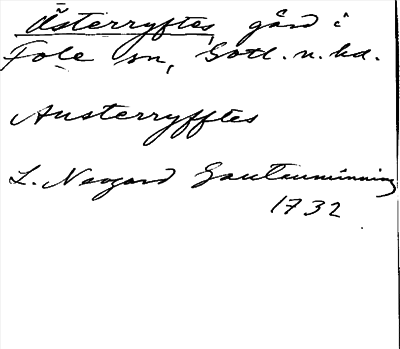 Österryftes, gård i
Fole sn, Gotl. n. hd.
Austerryfftes
L. Neogard Gautauminning
1732